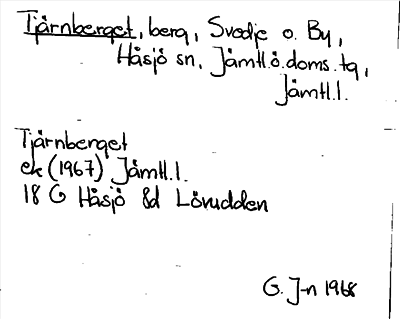 Tjärnberget, berg, Svedje o. By,
Håsjö sn, Jämtl.ö.doms.tg,
Jämtl.l.
Tjärnberget
ek (1967) Jämtl.l.
18 G Håsjö 8d Lövudden
G. J-n 1968